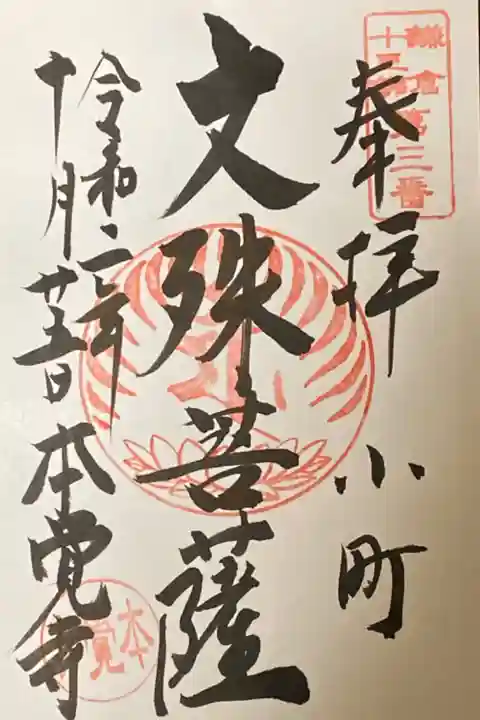 鎌倉
十三佛
第三番
奉拝 小町
文殊菩薩
令和二年
十月廿五日 本覚寺
本覚